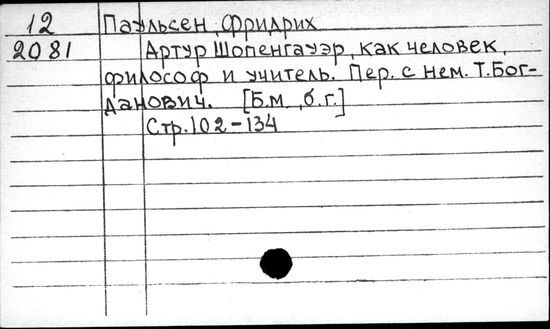 12 Паульсен, Фридрих
2081 Артур Шопенгауэр, как человек,
философ и учитель. Пер. с нем. Т.Бог-
данович. [Б.м., б.г.]
Стр.102-134